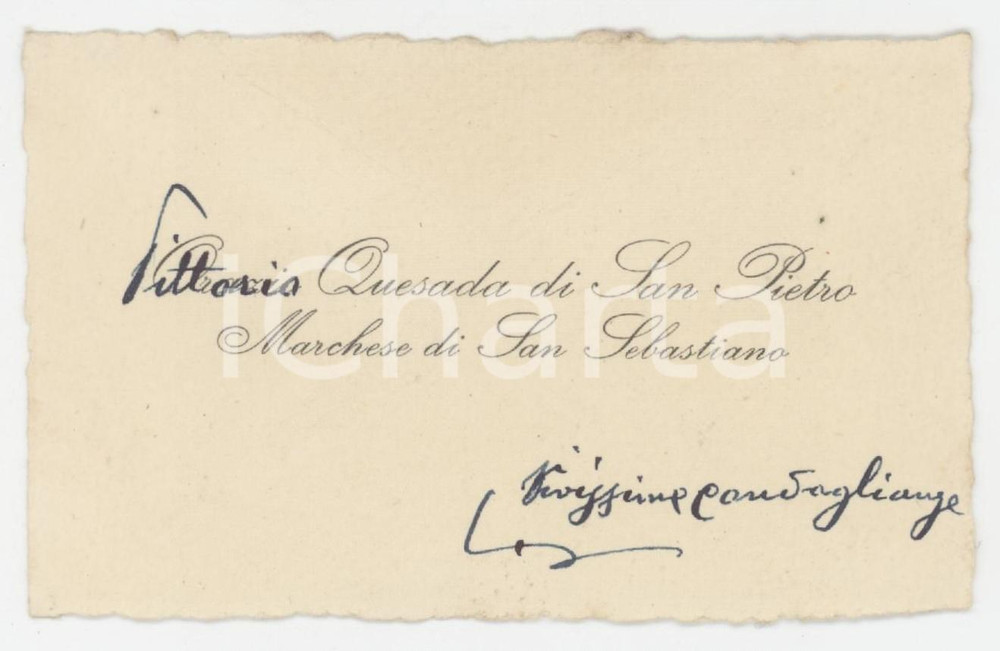 Vittorio Quesada di San Pietro
Marchese di San Sebastiano
iCharta
Vivissime condoglianze